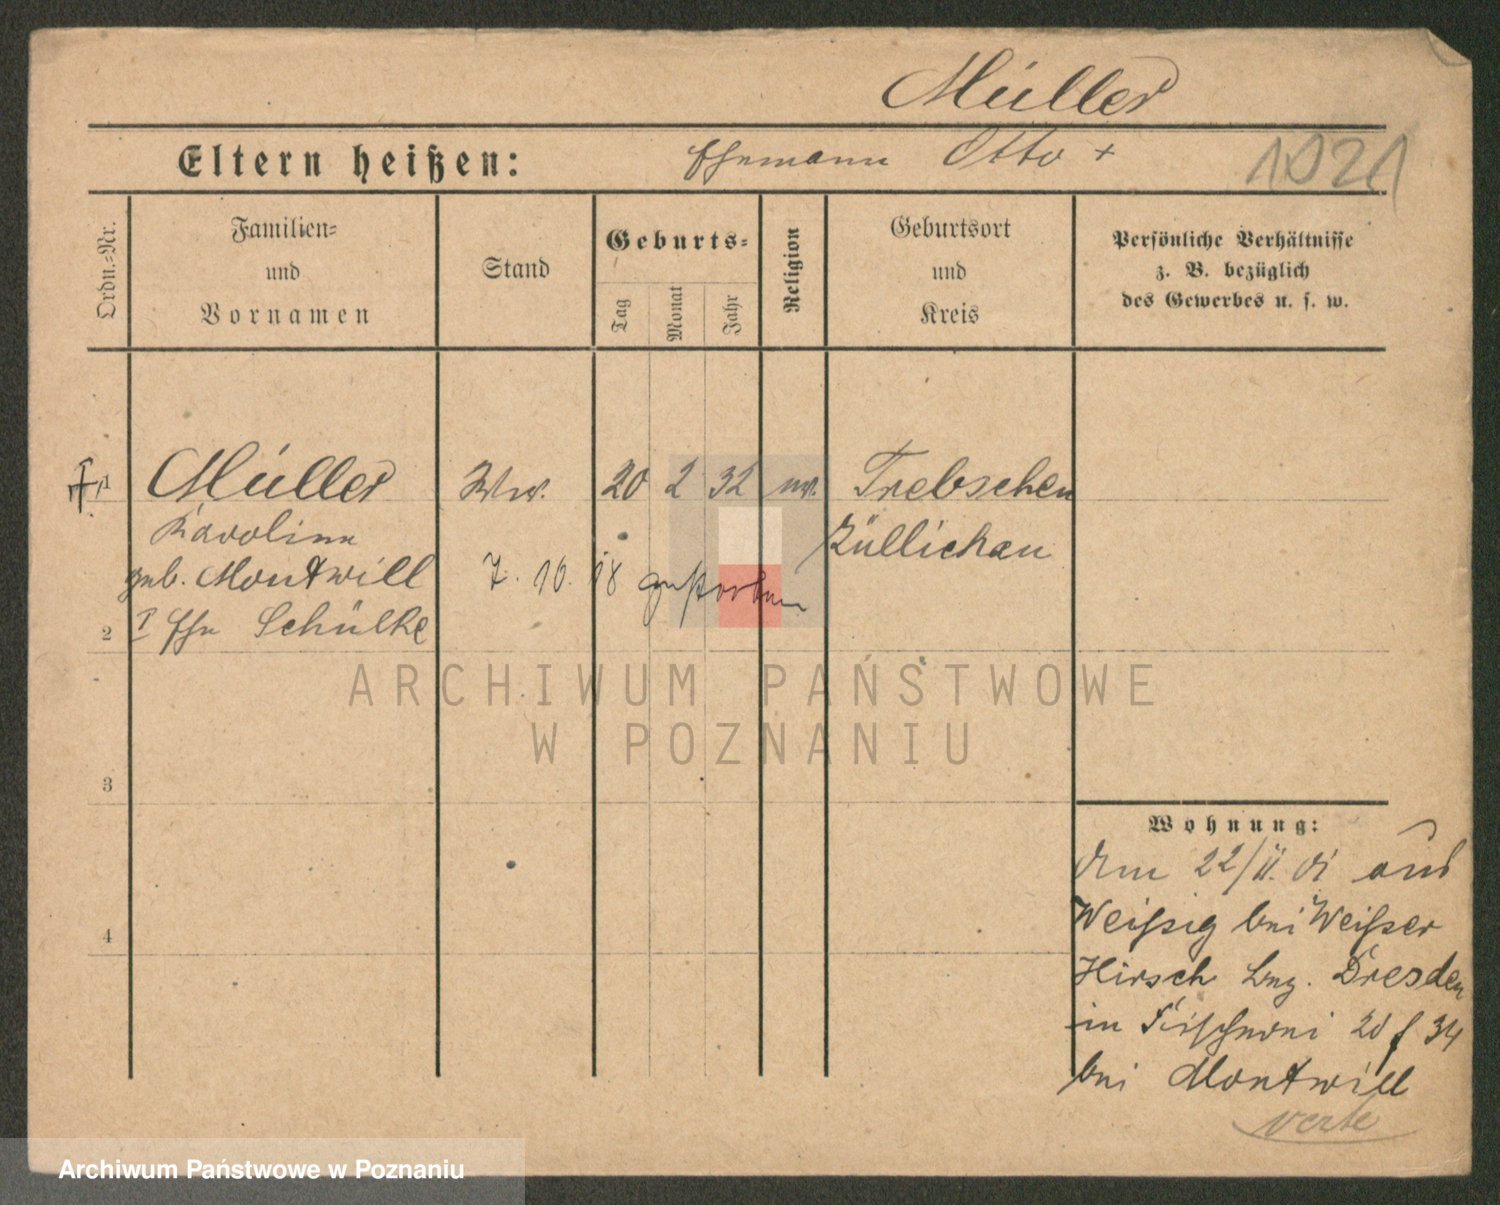 Müller
Eltern heißen: Ehemann Otto +
1021
Ordn.-Nr.
Familien-
und
Vornamen
Stand
Geburts-
Tag
Monat
Jahr
Religion
Geburtsort
und
Kreis
Persönliche Verhältnisse
z. B. bezüglich
des Gewerbes u. s. w.
Müller Ww. 20 2 32 ev. Trebschen
Karoline Züllichau
geb. Montwill 7. 10. 18 gestorben
2 I Ehe Schülke
3
4
Wohnung:
Am 22/II. 01 aus
Weißig bei Weißer
Hirsch bez. Dresden
in Fischerei 20 34
bei Montwill
verte
ARCHIWUM PAŃSTWOWE
W POZNANIU
Archiwum Państwowe w Poznaniu